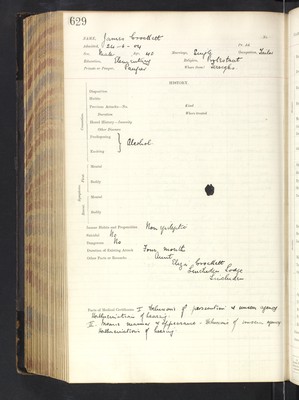 629
NAME, James Crockett
Admitted, 24-6-04
Sex, Male Age, 40 Marriage, Single Occupation, Tailor
Education, Elementary Religion, Protestant
Private or Pauper, Pauper Where from?
HISTORY.
Disposition
Habits
Previous Attacks—No. Kind
Duration Where treated
Moral History—Insanity
Other Diseases
Predisposing
Alcohol
Exciting
Mental
Bodily
Mental
Bodily
Insane Habits and Propensities Non epileptic
Suicidal No
Dangerous No
Duration of Existing Attack Four months
Other Facts or Remarks Aunt
Eliza Crockett
Lodge
Facts of Medical Certificates I Delusions of persecution & unseen agency
Hallucination of hearing.
II. Insane manner & appearance - Delusions of unseen agency
Hallucinations of hearing